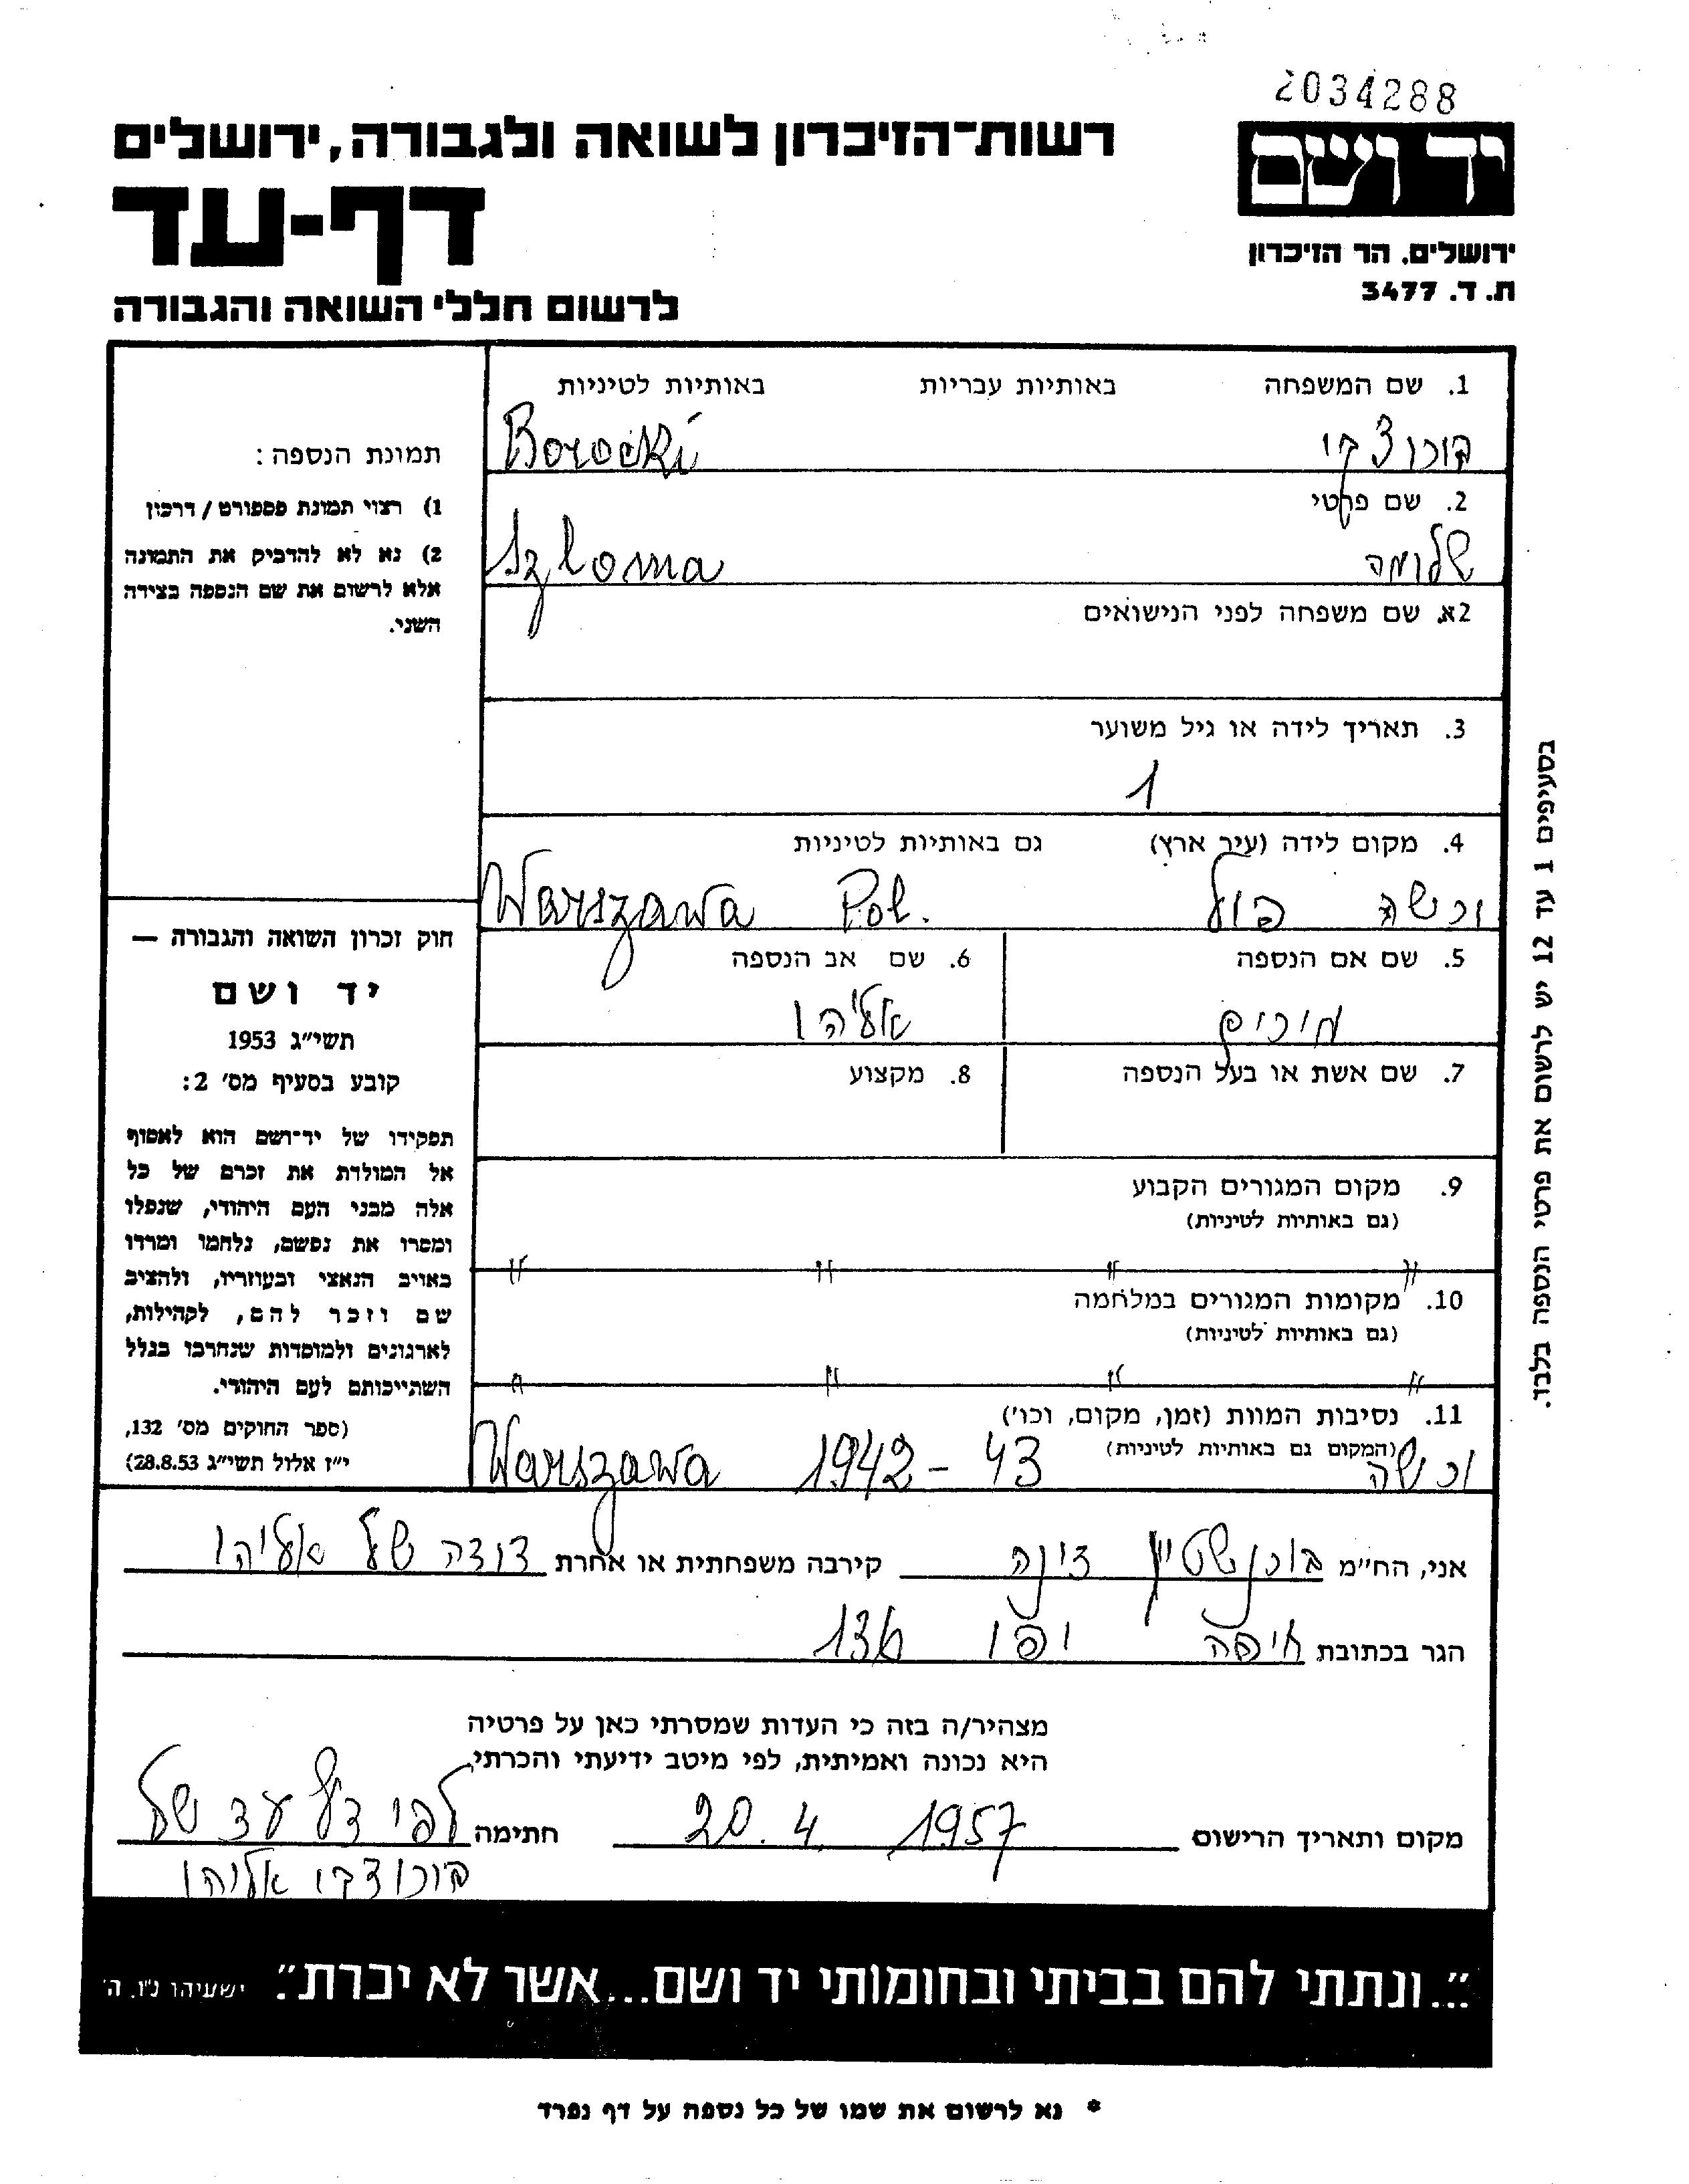 2034288
יד ושם
רשות־הזיכרון לשואה ולגבורה, ירושלים
דף-עד
ירושלים. הר הזיכרון
ת. ד. 3477
לרשום חללי השואה והגבורה
1. שם המשפחה באותיות עבריות באותיות לטיניות
בורוצקי Borocki
2. שם פרטי
שלומה Szloma
2א. שם משפחה לפני הנישואים
3. תאריך לידה או גיל משוער
1
4. מקום לידה (עיר ארץ) גם באותיות לטיניות
ורשה פול Warszawa Pol.
5. שם אם הנספה 6. שם אב הנספה
מרים אליהו
7. שם אשת או בעל הנספה 8. מקצוע
9. מקום המגורים הקבוע
(גם באותיות לטיניות)
〃 〃 〃 〃
10. מקומות המגורים במלחמה
(גם באותיות לטיניות)
〃 〃 〃 〃
11. נסיבות המוות (זמן, מקום, וכו')
(המקום גם באותיות לטיניות)
ורשה 1942-43 Warszawa
תמונת הנספה:
1) רצוי תמונת פספורט / דרכון
2) נא לא להדביק את התמונה
אלא לרשום את שם הנספה בצידה
השני.
חוק זכרון השואה והגבורה —
יד ושם
תשי״ג 1953
קובע בסעיף מס׳ 2:
תפקידו של יד־ושם הוא לאסוף
אל המולדת את זכרם של כל
אלה מבני העם היהודי, שנפלו
ומסרו את נפשם, נלחמו ומרדו
באויב הנאצי ובעוזריו, ולהציב
שם וזכר להם, לקהילות,
לארגונים ולמוסדות שנחרבו בגלל
השתייכותם לעם היהודי.
(ספר החוקים מס׳ 132,
י״ז אלול תשי״ג 28.8.53)
בסעיפים 1 עד 12 יש לרשום את פרטי הנספה בלבד.
אני, הח״מ בורנשטיין דינה קירבה משפחתית או אחרת דודה של אליהו
הגר בכתובת חיפה יפו 136
מצהיר/ה בזה כי העדות שמסרתי כאן על פרטיה
היא נכונה ואמיתית, לפי מיטב ידיעתי והכרתי
מקום ותאריך הרישום 20.4.1957 חתימה לפי דף עד של
בורוצקי אליהו
"...ונתתי להם בביתי ובחומותי יד ושם...אשר לא יכרת". ישעיהו נ״ו. ה׳
* נא לרשום את שמו של כל נספה על דף נפרד